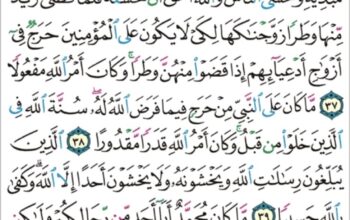 مِّنْهَا وَطَرًا زَوَّجْنَٰكَهَا لِكَىْ لَا يَكُونَ عَلَى ٱلْمُؤْمِنِينَ حَرَجٌ فِىٓ
أَزْوَٰجِ أَدْعِيَآئِهِمْ إِذَا قَضَوْا۟ مِنْهُنَّ وَطَرًا ۚ وَكَانَ أَمْرُ ٱللَّهِ مَفْعُولًا
٣٧ مَّا كَانَ عَلَى ٱلنَّبِىِّ مِنْ حَرَجٍ فِيمَا فَرَضَ ٱللَّهُ لَهُۥ ۖ سُنَّةَ ٱللَّهِ فِى
ٱلَّذِينَ خَلَوْا۟ مِن قَبْلُ ۚ وَكَانَ أَمْرُ ٱللَّهِ قَدَرًا مَّقْدُورًا ٣٨ ٱلَّذِينَ
يُبَلِّغُونَ رِسَٰلَٰتِ ٱللَّهِ وَيَخْشَوْنَهُۥ وَلَا يَخْشَوْنَ أَحَدًا إِلَّا ٱللَّهَ ۗ وَكَفَىٰ
بِٱللَّهِ حَسِيبًا ٣٩ مَّا كَانَ مُحَمَّدٌ أَبَآ أَحَدٍ مِّن رِّجَالِكُمْ وَلَٰكِن